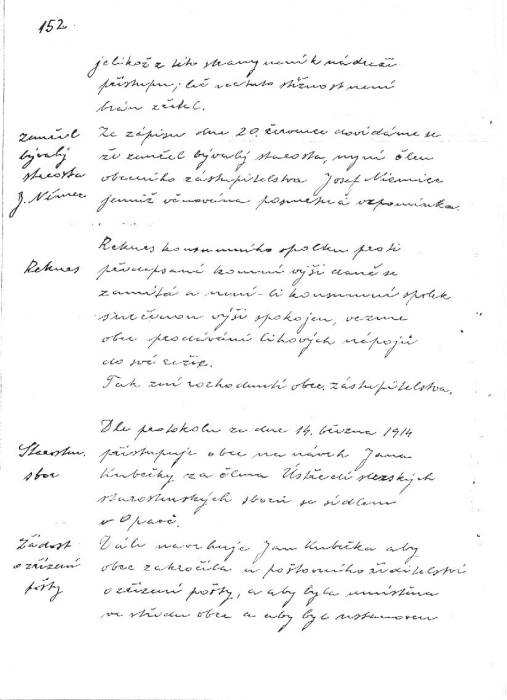 152
jelikož z této strany není k nádraží
přístupu; leč na tuto stížnost není
brán zřetel.
Zemřel
bývalý
starosta
J. Němec
Ze zápisu dne 20. července dovídáme se
že zemřel bývalý starosta, nyní člen
obecního zástupitelstva Josef Niemiec
jemuž věnována posmrtná vzpomínka.
Rekurs
Rekurs konsumního spolku proti
předepsané komní výši daně se
zamítá a není-li konsumní spolek
s určenou výší spokojen, vezme
obec prodávání lihových nápojů
do své režie.
Tak zní rozhodnutí obec. zástupitelstva.
Starosten.
sbor
Dle protokolu ze dne 14. března 1914
přistupuje obec na návrh Jana
Kubečky za člena Ústředí slezských
starostenských sborů se sídlem
v Opavě.
Žádost
o zřízení
pošty
Dále navrhuje Jan Kubečka aby
obec zakročila u poštovního ředitelství
o zřízení pošty, a aby byla umístěna
ve středu obce a aby byl ustanoven